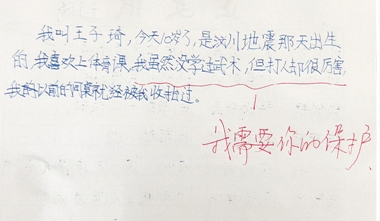 我叫王子琦,今天10岁了,是汶川地震那天出生
的.我喜欢上体育课,我虽然没学过武术,但打人却很厉害,
我的以前的同桌就经被我收拾过。
我需要你的保护